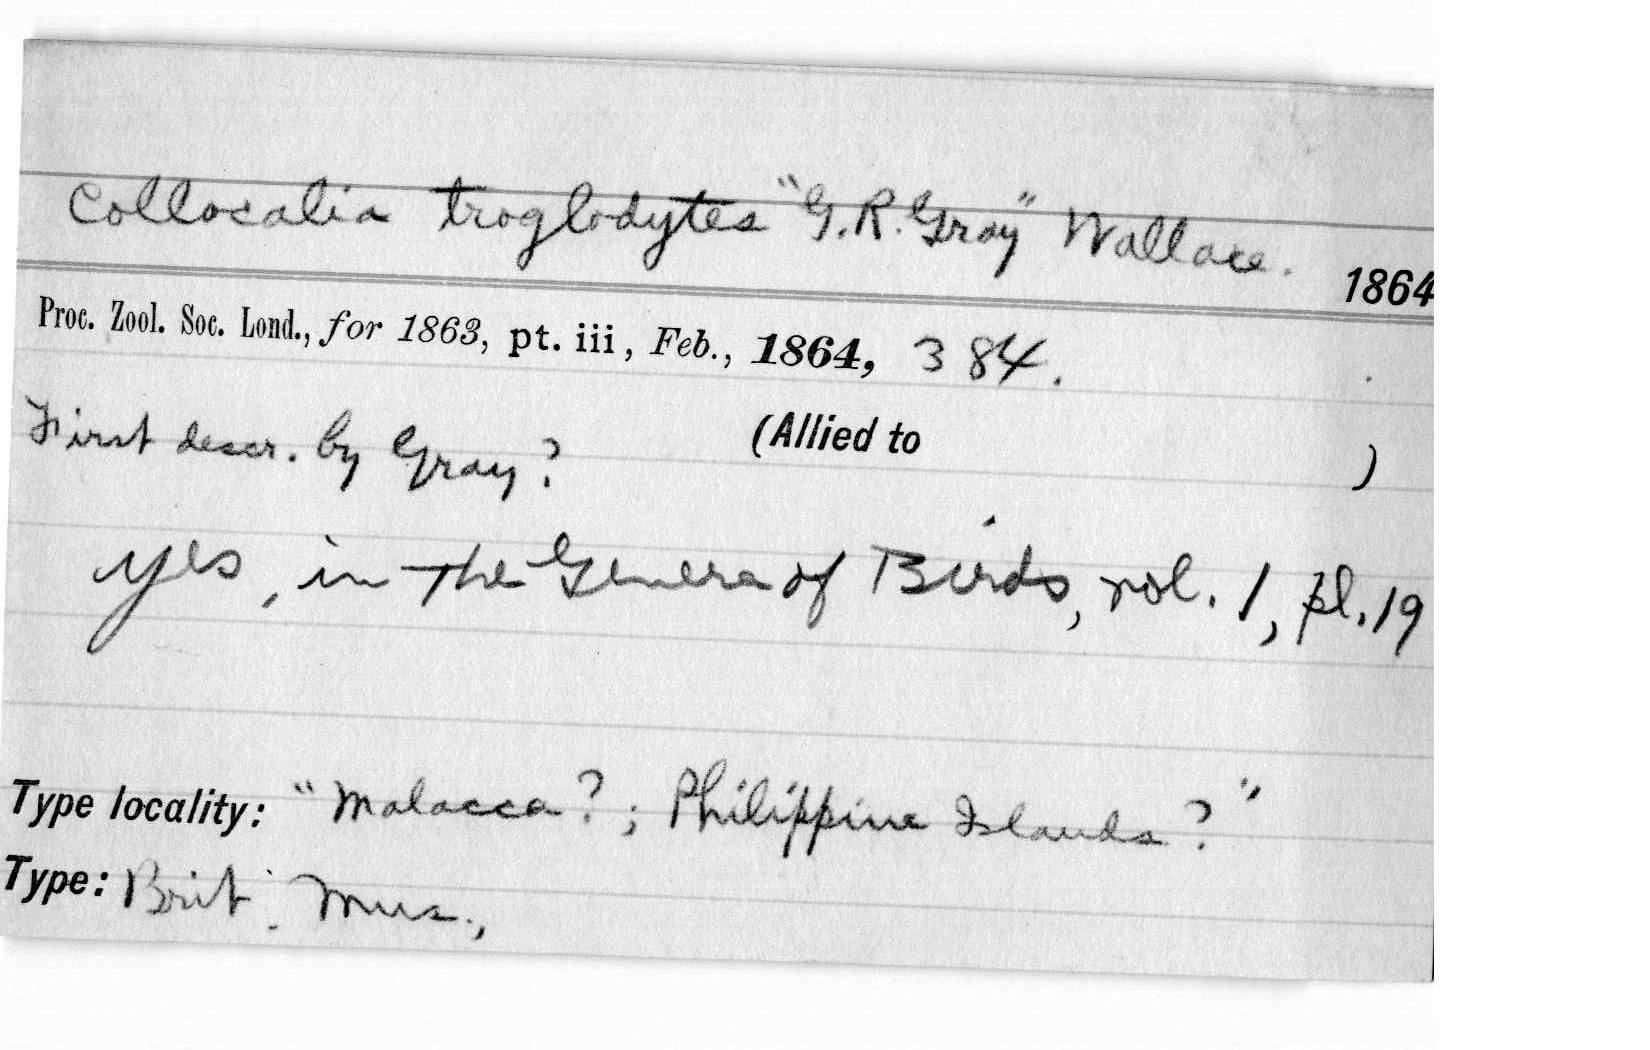 Collocalia troglodytes "G.R. Gray" Wallace. 1864
Proc. Zool. Soc. Lond., for 1863, pt. iii, Feb., 1864, 384.
First descr. by Gray? (Allied to )
yes, in the Genera of Birds, vol. 1, pl. 19
Type locality: "Malacca?; Philippine Islands?"
Type: Brit. Mus.,